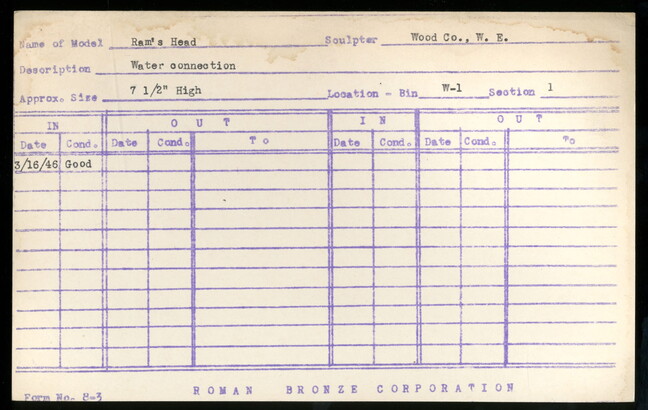 Name of Model Ram's Head Sculptor Wood Co., W. E.
Description Water connection
Approx. Size 7 1/2" High Location - Bin W-1 Section 1
IN OUT IN OUT
Date Cond. Date Cond. To Date Cond. Date Cond. To
3/16/46 Good
Form No. 8-3 ROMAN BRONZE CORPORATION